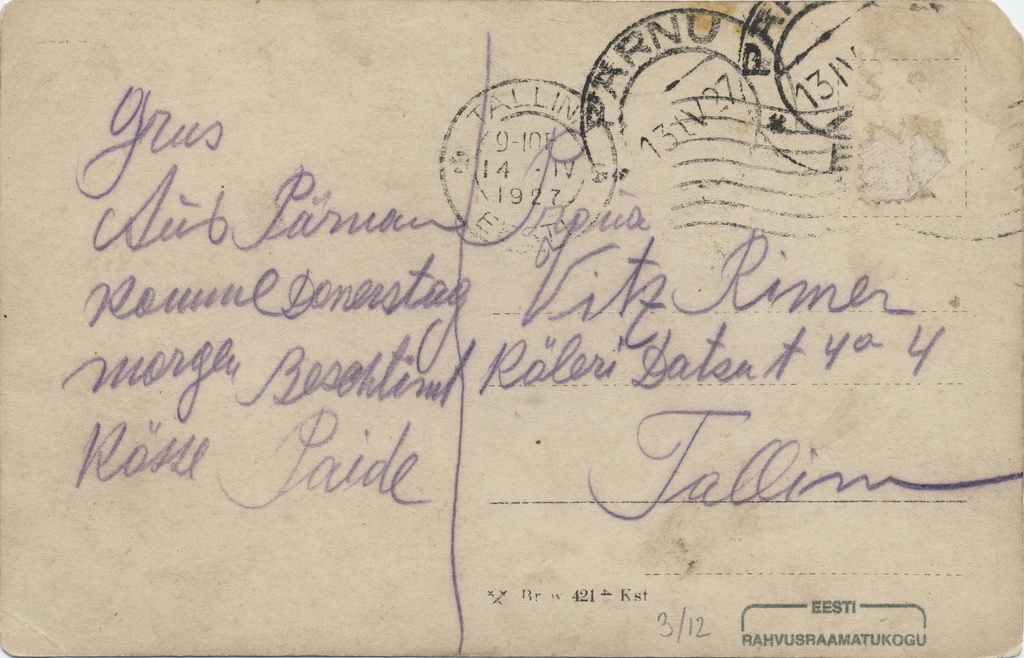 Grus
Aus Pärnau
komme Donerstag
morgen Beschtimt
Kösse Paide
Vitz Rimer
Köleri Datsa t 4a 4
Tallinn
TALLINN
9-10
14 IV
1927
EESTI
PÄRNU
13 IV 27
PÄR
13 IV
Br w 421 Kst
3/12
EESTI
RAHVUSRAAMATUKOGU